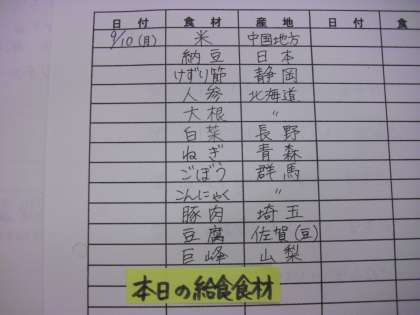 日付 食材 産地 日付 食
9/10(月) 米 中国地方
納豆 日本
けずり節 静岡
人参 北海道
大根 〃
白菜 長野
ねぎ 青森
ごぼう 群馬
こんにゃく 〃
豚肉 埼玉
豆腐 佐賀(豆)
巨峰 山梨
本日の給食食材